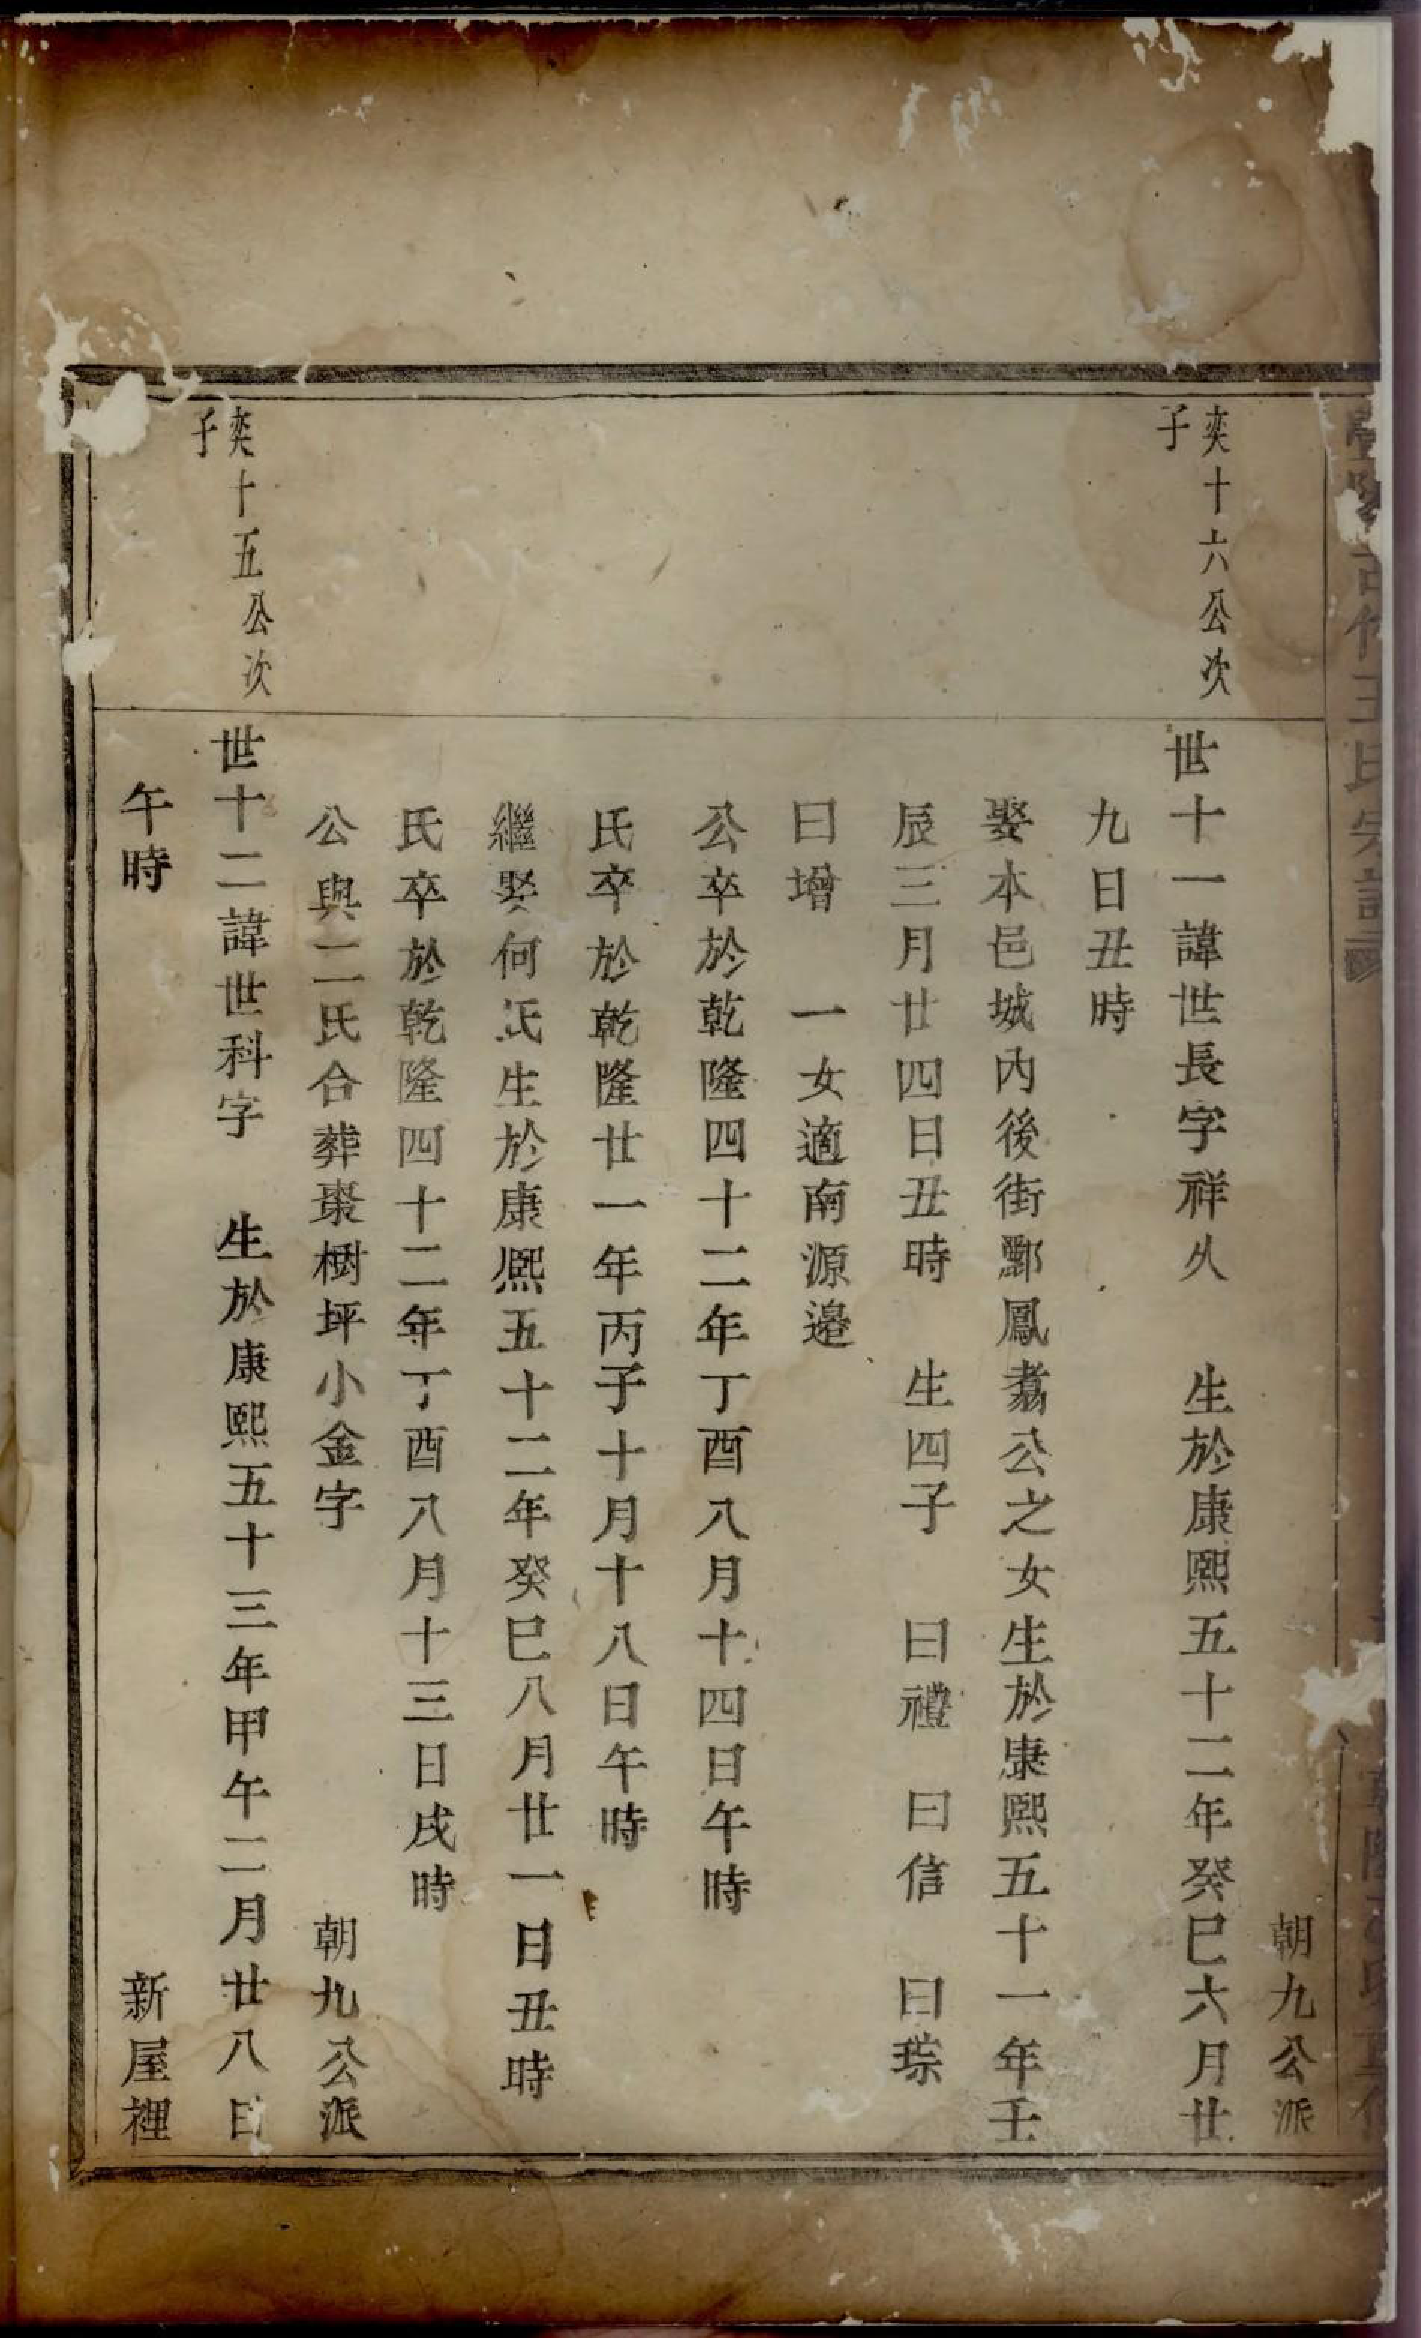 朝九公派
奕十六公次
子
世十一諱世長字祥久　生於康熙五十二年癸巳六月廿
九日丑時
娶本邑城內後街鄭鳳翥公之女生於康熙五十一年壬
辰三月廿四日丑時　生四子　曰禮　曰信　曰琮
曰增　一女適南源邉
公卒於乾隆四十二年丁酉八月十四日午時
氏卒於乾隆廿一年丙子十月十八日午時
繼娶何氏生於康熙五十二年癸巳八月廿一日丑時
氏卒於乾隆四十二年丁酉八月十三日戌時
公與二氏合葬棗樹坪小金字　朝九公派
奕十五公次
子
世十二諱世科字　生於康熙五十三年甲午二月廿八日
午時　新屋裡